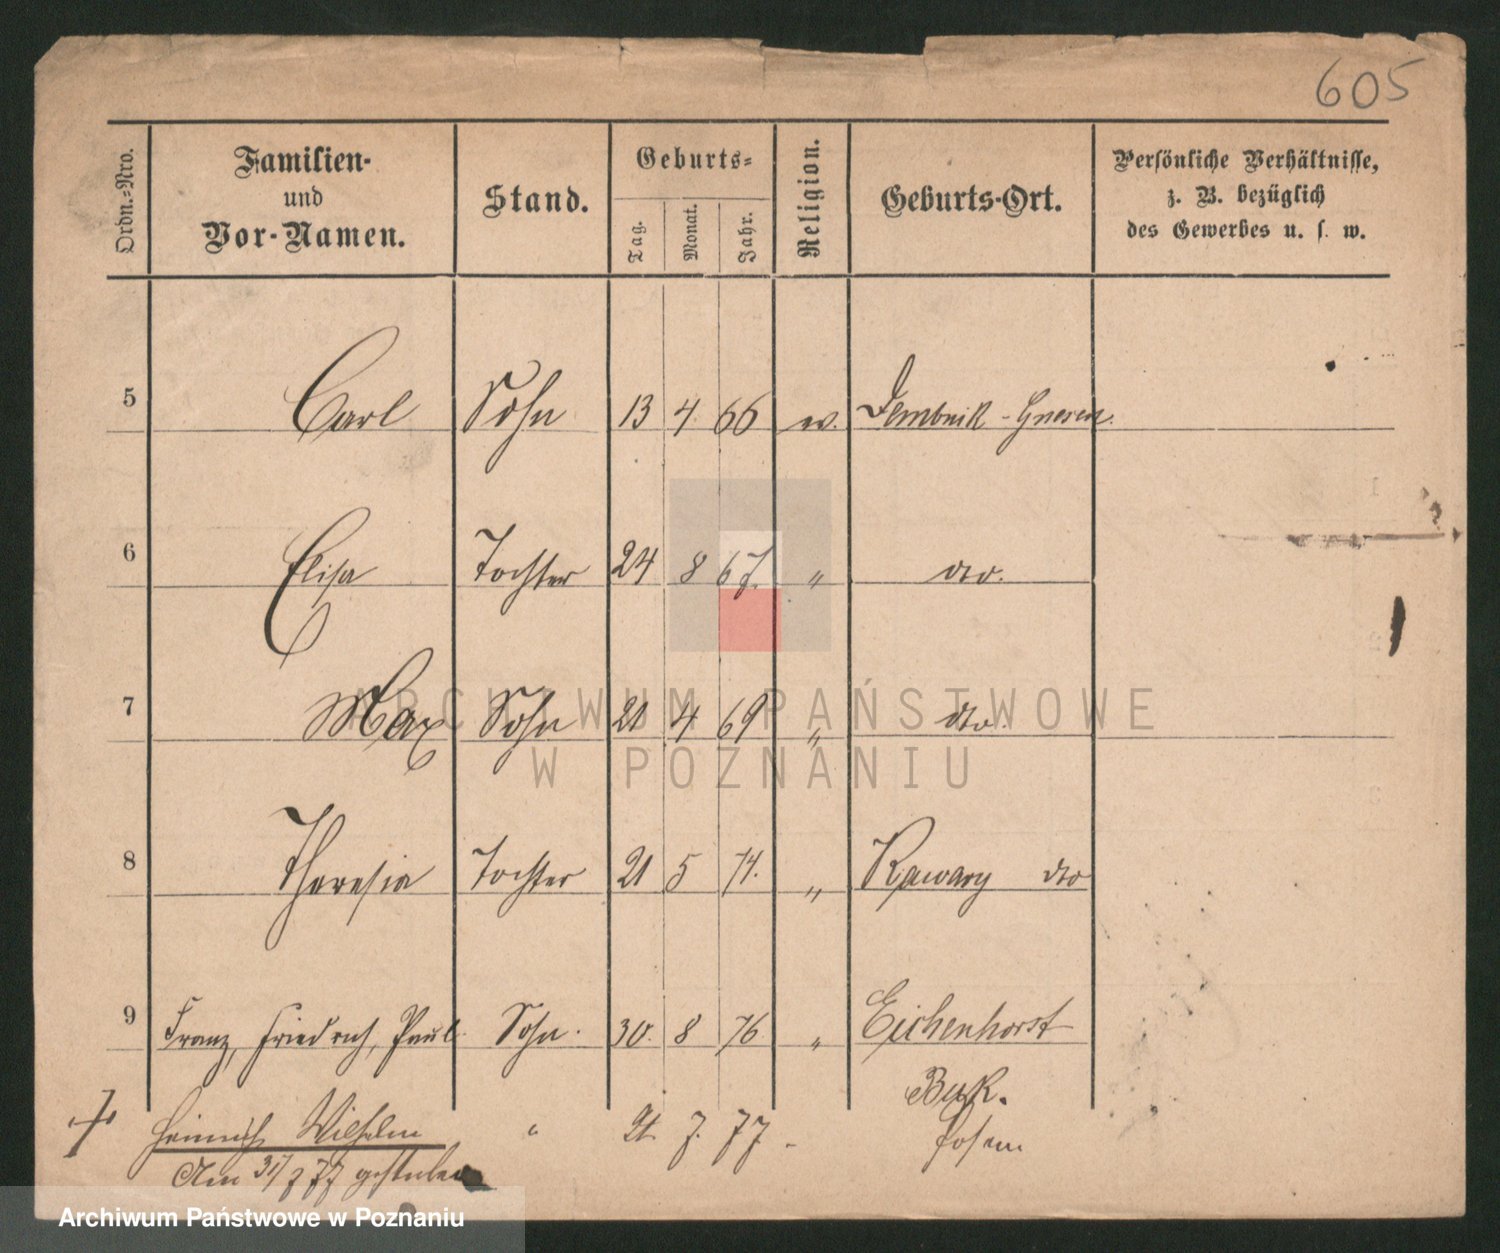 605
Ordn.-Nro.
Familien-
und
Vor-Namen.
Stand.
Geburts-
Tag.
Monat.
Jahr.
Religion.
Geburts-Ort.
Persönliche Verhältnisse,
z. B. bezüglich
des Gewerbes u. s. w.
5 Carl Sohn 13 4 66 ev. Dembnik - Gnesen.
6 Elisa Tochter 24 8 67. " dto.
7 Max Sohn 21 4 69 " dto.
8 Theresia Tochter 21 5 74. " Rawary dto
9 Franz, Friedrich, Paul. Sohn. 30. 8 76 " Eichenhorst
Buk.
+ Heinrich Wilhelm " 21. 7. 77 - Posen
Am 31/7 77 gestorben
ARCHIWUM PAŃSTWOWE
W POZNANIU
Archiwum Państwowe w Poznaniu